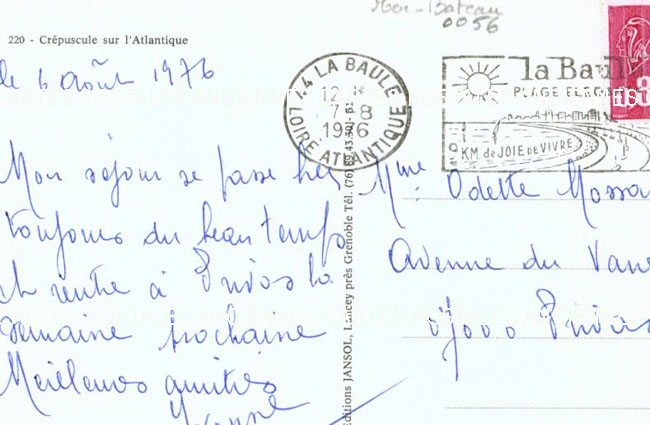 Mer - Bateau
0056
220 - Crépuscule sur l'Atlantique
le 6 août 1976
44 LA BAULE
12 H
7-8
1976
LOIRE ATLANTIQUE
la Baule
PLAGE
KM de JOIE DE VIVRE
CARTES POSTALES ANCIENNES CARTES POSTALES
Mon séjour se passe très
toujours du beau temps
et rentre à Privas la
semaine prochaine
Meilleures amitiés
Mme Odette
Avenue du
07000 Privas
CARTES POSTALES ANCIENNES CARTES POSTALES ANCIENNES
Editions JANSOL, Lancey près Grenoble Tél. (76)